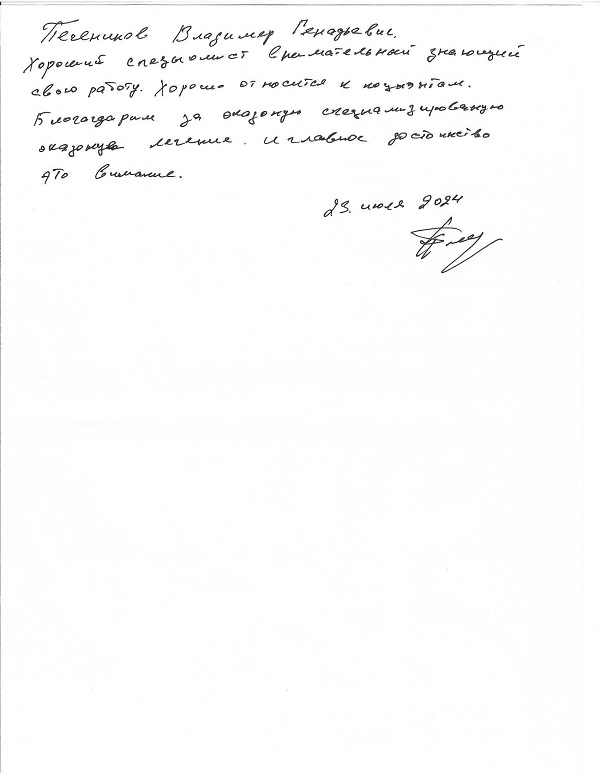 Печеников Владимер Генадьевич.
Хороший спецыолист внимательный знающий
свою работу. Хорошо относится к пацыэнтам.
Благогдарим за оказоную специализированую
оказоную легение. и главное достоинство
это внимание.
23. июля 2024